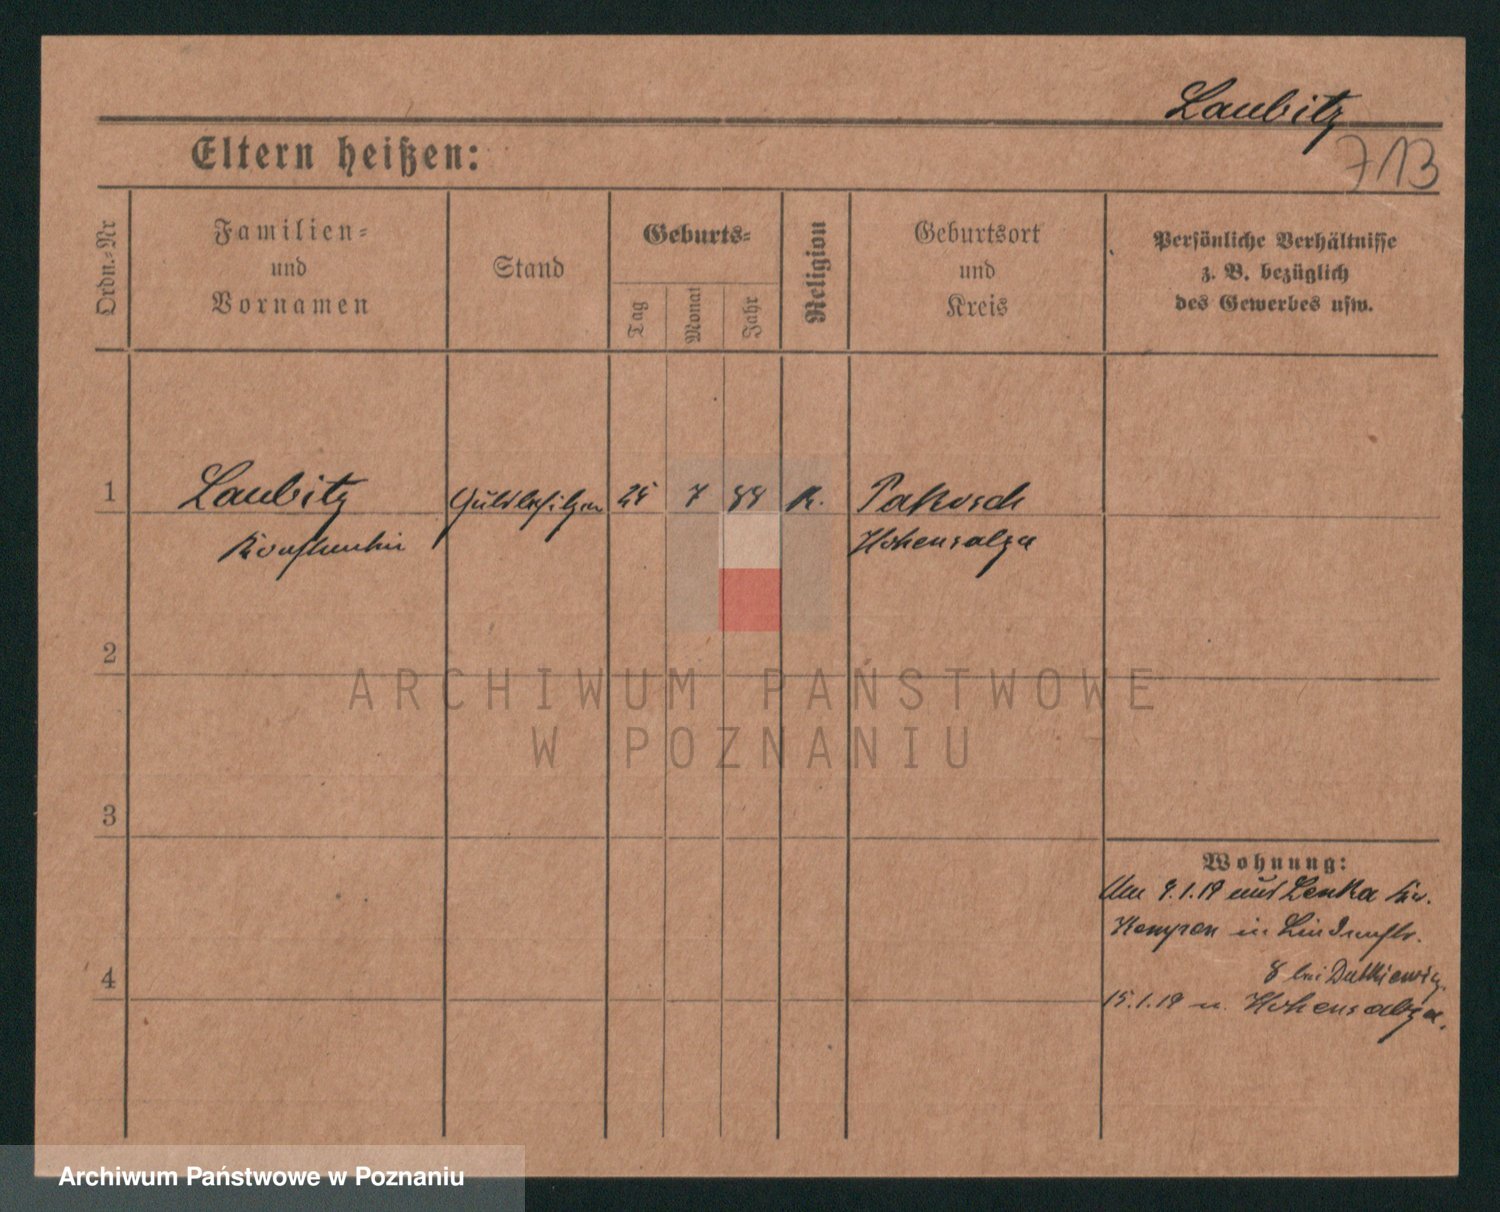 Laubitz
713
Eltern heißen:
Ordn.-Nr
Familien-
und
Vornamen
Stand
Geburts-
Tag
Monat
Jahr
Religion
Geburtsort
und
Kreis
Persönliche Verhältnisse
z. B. bezüglich
des Gewerbes usw.
1
Laubitz
Konstantin
Gutsbesitzer
25
7
88
K.
Pakosch
Hohensalza
2
ARCHIWUM PAŃSTWOWE
W POZNANIU
3
Wohnung:
9.1.19 aus Lenka Kr.
Kempen in Lindenstr.
8 bei Dutkiewicz.
4
15.1.19 n. Hohensalza.
Archiwum Państwowe w Poznaniu